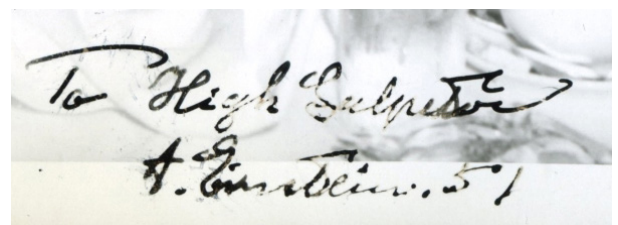 To High Sculptor
A. Einstein. 51